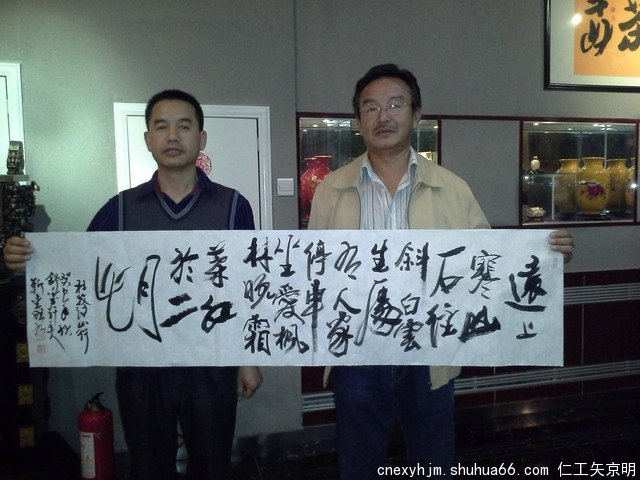 遠上
寒山
石径
斜白雲
生處
有人家
停車
坐愛楓
林晚霜
葉紅
於二
月
花
杜牧诗山行
癸巳年秋
cnexyhjm.shuhua66.com 仁工矢京明